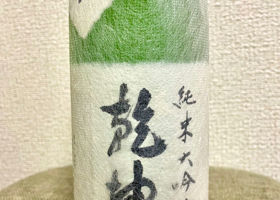 純米大吟
乾坤